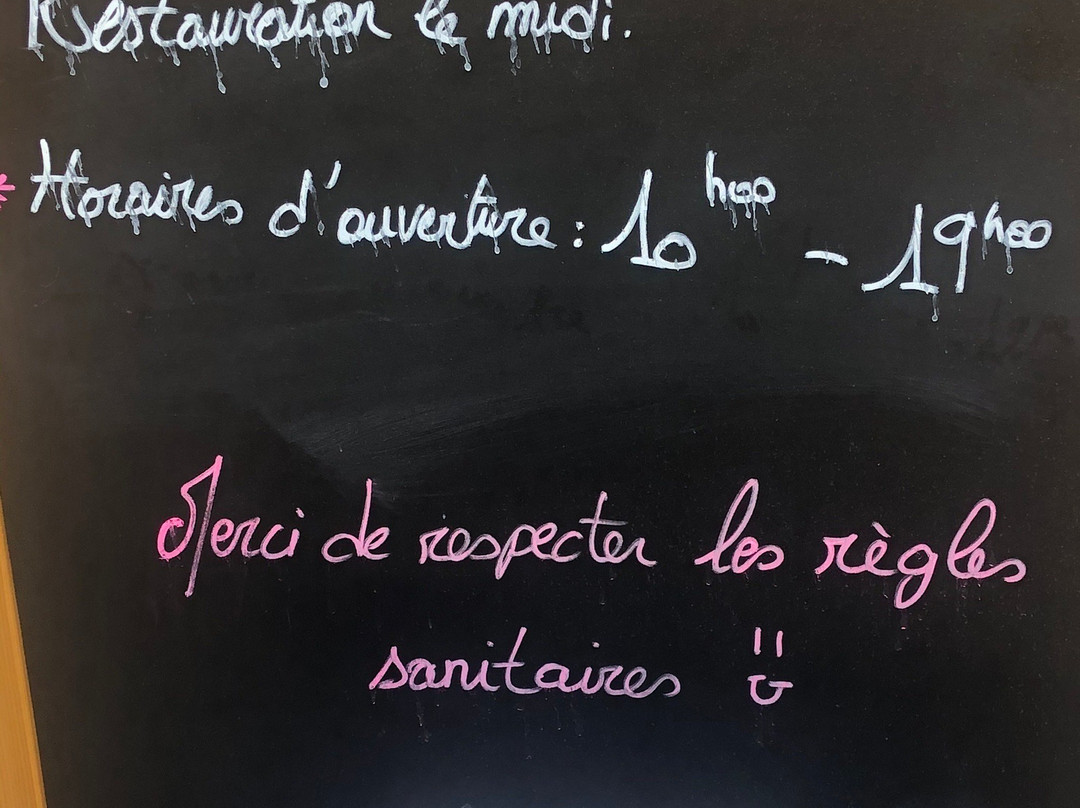 Restauration le midi.
* Horaires d'ouverture : 10h00 - 19h00
Merci de respecter les règles
sanitaires